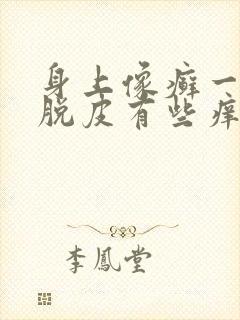 身上像癣一
脱皮有些痒
李鳳堂